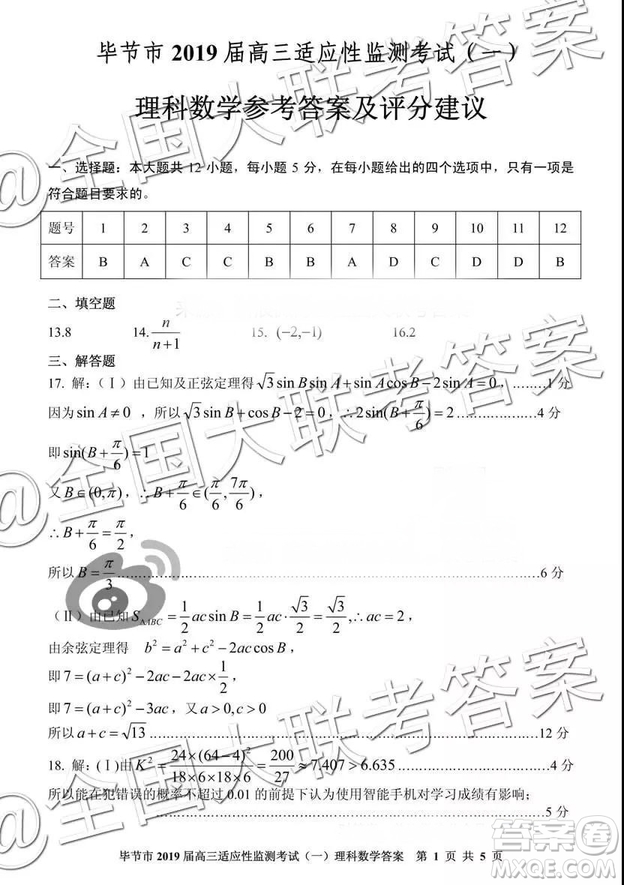 毕节市 2019 届高三适应性监测考试（一）
理科数学参考答案及评分建议
一、选择题：本大题共 12 小题，每小题 5 分，在每小题给出的四个选项中，只有一项是
符合题目要求的。
题号 1 2 3 4 5 6 7 8 9 10 11 12
答案 B A C C B A A D C D D B
二、填空题
13.8 14. n/(n+1) 15. (−2,−1) 16.2
三、解答题
17. 解：（Ⅰ）由已知及正弦定理得 √3 sin B sin A + sin A cos B − 2 sin A = 0，………1 分
因为 sin A ≠ 0 ，所以 √3 sin B + cos B − 2 = 0，∴ 2 sin(B + π/6) = 2 ……………4 分
即 sin(B + π/6) = 1
又 B ∈ (0, π)，∴ B + π/6 ∈ (π/6, 7π/6)，
∴ B + π/6 = π/2，
所以 B = π/3 ……………6 分
（Ⅱ）由已知 S△ABC = 1/2 ac sin B = 1/2 ac · √3/2 = √3/2, ∴ ac = 2，
由余弦定理得 b² = a² + c² − 2ac cos B，
即 7 = (a + c)² − 2ac − 2ac × 1/2，
即 7 = (a + c)² − 3ac，又 a > 0, c > 0
所以 a + c = √13 ……………12 分
18. 解：（Ⅰ）由 K² = 24×(64−4)²/(18×6×18×6) = 200/27 ≈ 7.407 > 6.635 ……………4 分
所以能在犯错误的概率不超过 0.01 的前提下认为使用智能手机对学习成绩有影响；
……………5 分
毕节市 2019 届高三适应性监测考试（一）理科数学答案 第 1 页 共 5 页
@全国大联考答案
@全国大联考答案
@全国大联考答案
答案圈
MXQE.COM